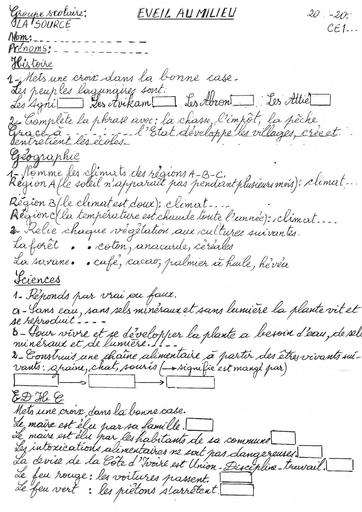 Groupe scolaire: EVEIL AU MILIEU 20...-20..
LA SOURCE CE1...
Nom: ------------
Prénoms: ------------
Histoire
1- Mets une croix dans la bonne case.
Les peuples lagunaires sont:
Les Agni Les Avikam Les Abron Les Attié
2- Complète la phrase avec: la chasse, l'impôt, la pêche
Grace à ------------ l'Etat développe les villages, crée et
entretient les écoles.
Géographie
1- Nomme les climats des régions A-B-C.
Région A (le soleil n'apparait pas pendant plusieurs mois): climat...
Région B (le climat est doux): climat....
Région C (la température est chaude toute l'année): climat....
2- Relie chaque végétation aux cultures suivantes.
La forêt . . coton, anacarde, céréales
La savane . . café, cacao, palmier à huile, hévéa
Sciences
1- Réponds par vrai ou faux.
a- Sans eau, sans sels minéraux et sans lumière la plante vit et
se reproduit----
b- Pour vivre et se développer la plante a besoin d'eau, de sels
minéraux et de lumière.----
2- Construis une chaîne alimentaire à partir des êtres vivants sui-
vants: graine, chat, souris (→ signifie est mangé par)
→ →
EDHC
Mets une croix dans la bonne case.
Le maire est élu par sa famille.
Le maire est élu par les habitants de sa commune
Les intoxications alimentaires ne sont pas dangereuses
La devise de la Côte d'Ivoire est Union-Discipline-Travail.
Le feu rouge: les voitures passent
Le feu vert : les piétons s'arrêtent.